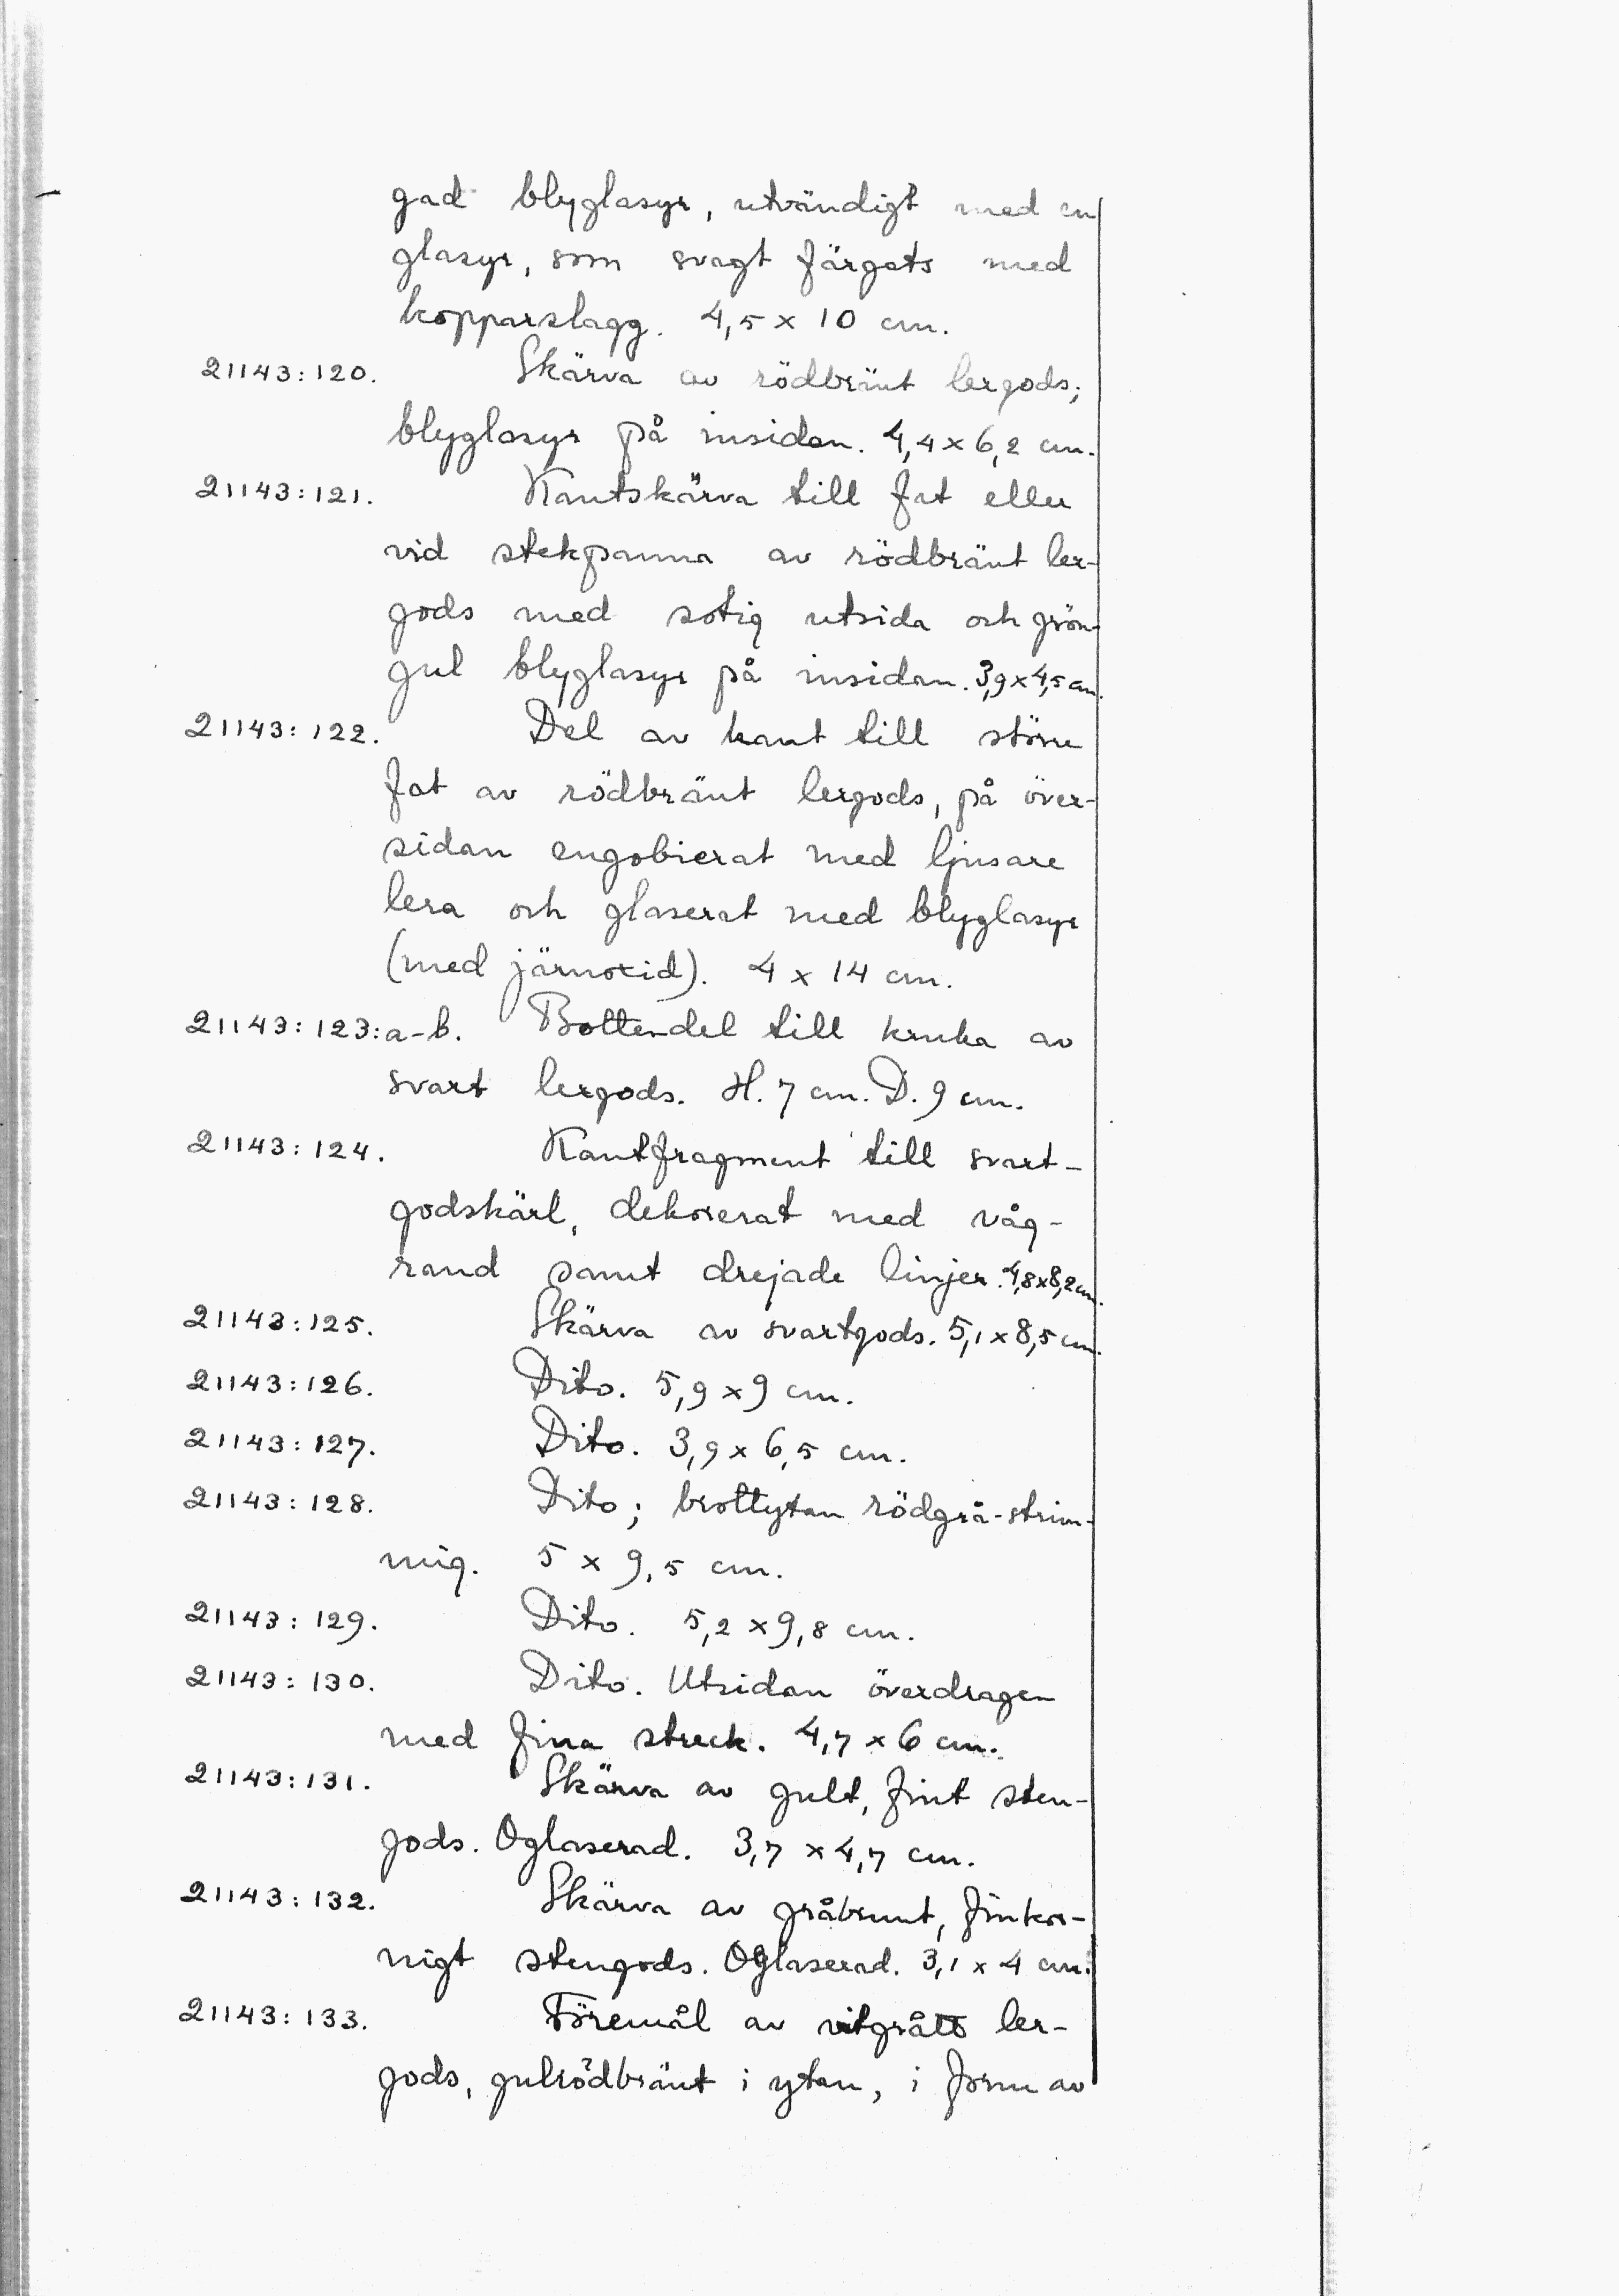 gad blyglasyr, utvändigt med en
glasyr, som svagt färgats med
kopparslagg. 4,5 x 10 cm.
21143:120. Skärva av rödbränt lergods;
blyglasyr på insidan. 4,4 x 6,2 cm.
21143:121. Kantskärva till fat eller
vid stekpanna av rödbränt ler-
gods med sotig utsida och grön-
gul blyglasyr på insidan. 3,9 x 4,5 cm.
21143:122. Del av kant till större
fat av rödbränt lergods, på över-
sidan engobierat med ljusare
lera och glaserat med blyglasyr
(med järnoxid). 4 x 14 cm.
21143:123:a-b. Bottendel till kruka av
svart lergods. H. 7 cm. D. 9 cm.
21143:124. Kantfragment till svart-
godskärl, dekorerat med våg-
rand samt drejade linjer. 4,8 x 8,2 cm.
21143:125. Skärva av svartgods. 5,1 x 8,5 cm.
21143:126. Dito. 5,9 x 9 cm.
21143:127. Dito. 3,9 x 6,5 cm.
21143:128. Dito; brottytan rödgrå-strim-
mig. 5 x 9,5 cm.
21143:129. Dito. 5,2 x 9,8 cm.
21143:130. Dito. Utsidan överdragen
med fina streck. 4,7 x 6 cm.
21143:131. Skärva av gult, fint sten-
gods. Oglaserad. 3,7 x 4,7 cm.
21143:132. Skärva av gråbrunt, finkor-
nigt stengods. Oglaserad. 3,1 x 4 cm.
21143:133. Föremål av vitgrått ler-
gods, gulrödbränt i ytan, i form av